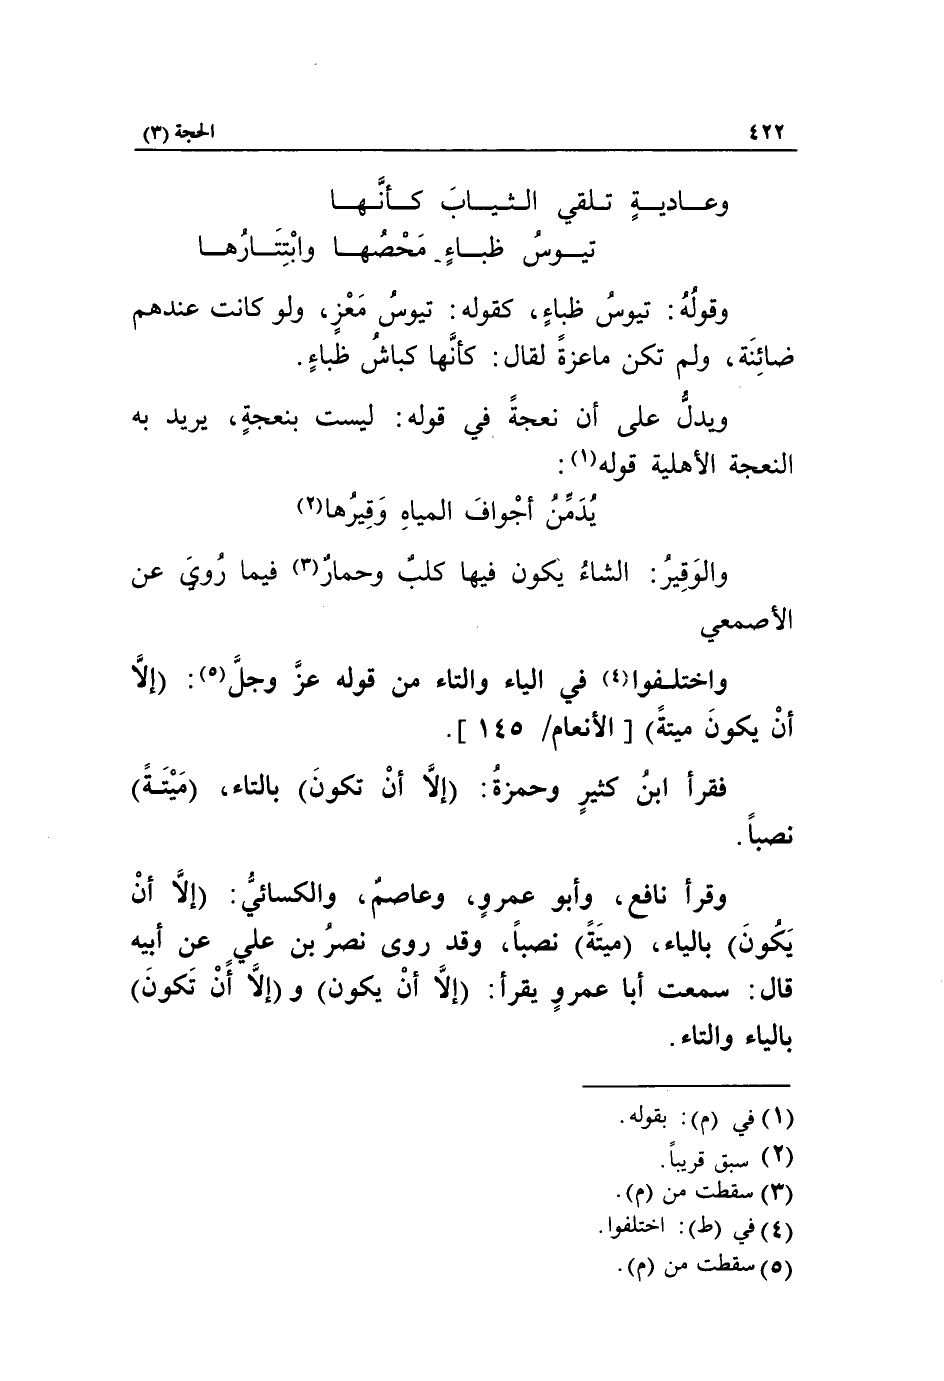 ٤٢٢ الحجة (٣)
وعـاديـةٍ تـلقي الـثيـابَ كـأنَّـهـا
تيـوسُ ظبـاءٍ مَحْصُهـا وابْتِتَـارُهـا
وقولُهُ: تيوسُ ظباءٍ، كقوله: تيوسُ مَعْزٍ، ولو كانت عندهم
ضائِنَة، ولم تكن ماعزةً لقال: كأنَّها كباشُ ظباءٍ.
ويدلُّ على أن نعجةً في قوله: ليست بنعجةٍ، يريد به
النعجة الأهلية قوله(١):
يُدَمِّنُ أجْوافَ المياهِ وَقِيرُها(٢)
والوَقِيرُ: الشاءُ يكون فيها كلبٌ وحمارٌ(٣) فيما رُويَ عن
الأصمعي
واختلـفوا(٤) في الياء والتاء من قوله عزَّ وجلَّ(٥): (إلاَّ
أنْ يكونَ ميتةً) [الأنعام/ ١٤٥].
فقرأ ابنُ كثيرٍ وحمزةُ: (إلاَّ أنْ تكونَ) بالتاء، (مَيْتَـةً)
نصباً.
وقرأ نافع، وأبو عمروٍ، وعاصمٌ، والكسائيُّ: (إلاَّ أنْ
يَكُونَ) بالياء، (ميتَةً) نصباً، وقد روى نصرُ بن علي عن أبيه
قال: سمعت أبا عمروٍ يقرأ: (إلاَّ أنْ يكون) و (إلاَّ أنْ تَكونَ)
بالياء والتاء.
(١) في (م): بقوله.
(٢) سبق قريباً.
(٣) سقطت من (م).
(٤) في (ط): اختلفوا.
(٥) سقطت من (م).